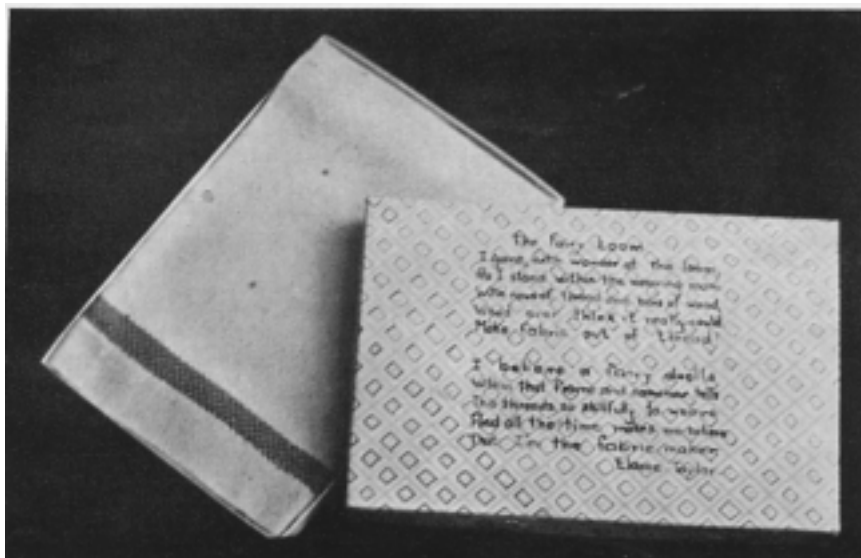 The Fairy Loom
I gaze with wonder at the loom,
As I stand within the weaving room
With rows of thread and bars of wood,
Who'd ever think it really could
Make fabric out of thread.
I believe a fairy dwells
Within that frame and somehow tells
The threads so skillfully to weave
And all the time makes me believe
That I'm the fabric maker.
Elaine Taylor